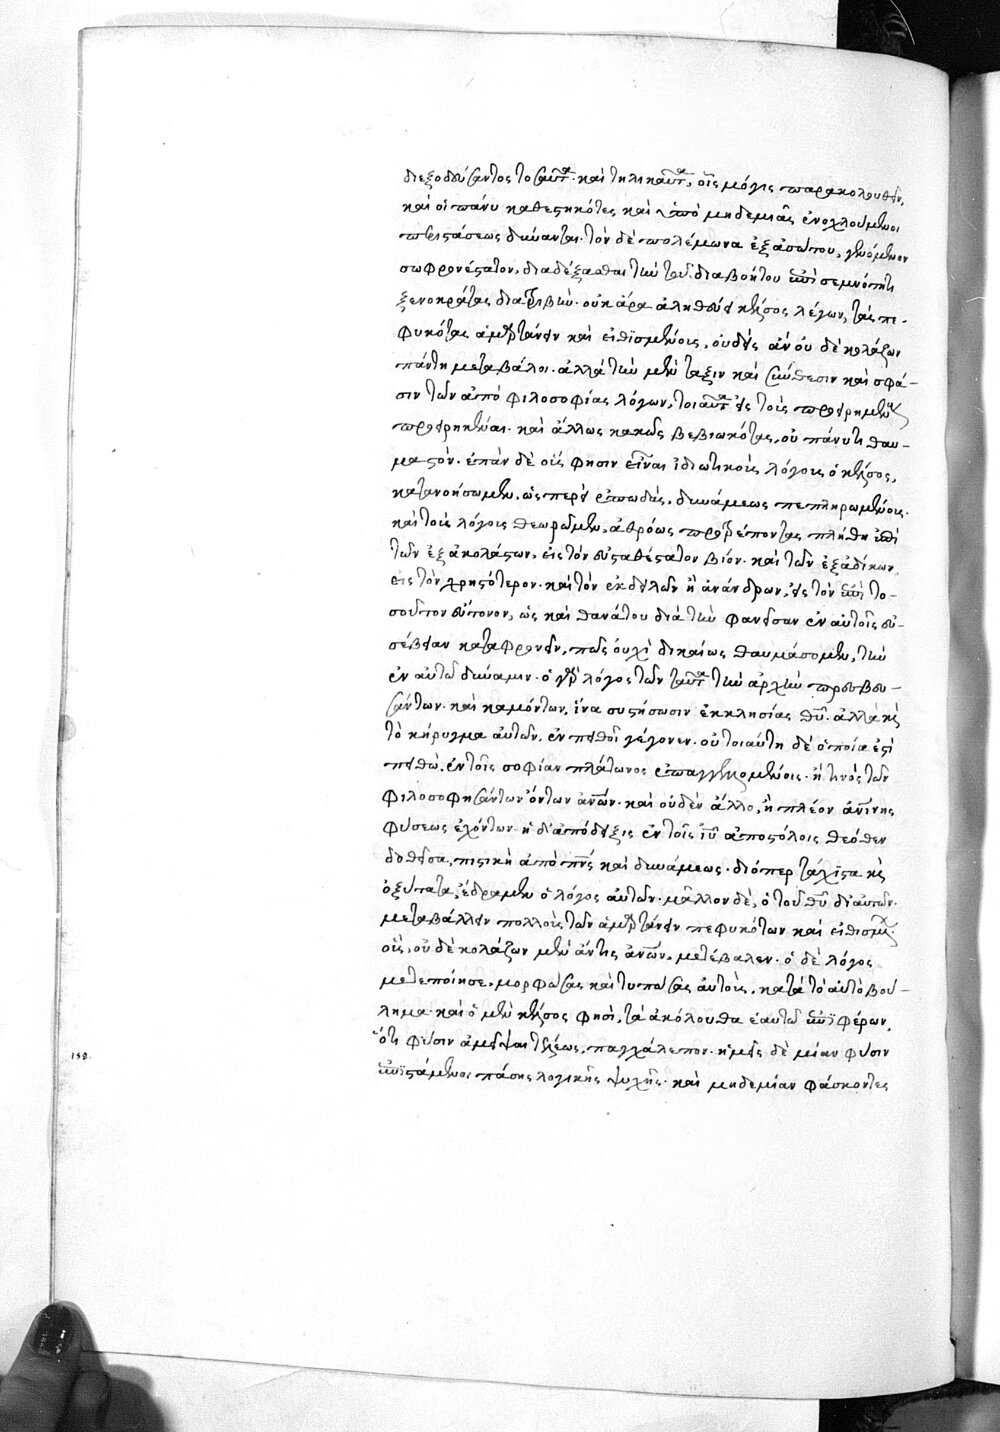 διεξοδεύσαντος τοσαῦτα καὶ τηλικαῦτα, οἷς μόγις παρακολουθεῖν,
καὶ οἱ πάνυ καθεστηκότες καὶ ὑπὸ μηδεμιᾶς ἐνοχλούμενοι
περιστάσεως δύνανται. τὸν δὲ πολέμωνα ἐξ ἀσώτου, γενόμενον
σωφρονέστατον, διαδέξασθαι τὴν τοῦ διαβοήτου ἐπὶ σεμνότητι
ξενοκράτας διατριβὴν. οὐκ ἄρα ἀληθεύει κέλσος λέγων, τὰς πε-
φυκότας ἁμαρτάνειν καὶ εἰθισμένοις, οὐδεὶς ἂν οὐδὲ κολάζων
πάντη μεταβάλοι. ἀλλὰ τὴν μὲν τάξιν καὶ σύνθεσιν καὶ φρά-
σιν τῶν ἀπὸ φιλοσοφίας λόγων, τοιαῦτα εἰς τοὺς προειρημένους
προειρηκέναι. καὶ ἄλλως κακῶς βεβιωκότας, οὐ πάνυ τι θαυ-
μαστὸν. ἐπὰν δὲ οὕς φησιν εἶναι ἰδιωτικοὺς λόγους ὁ κέλσος,
κατανοήσωμεν, ὡσπερεὶ ἐπωδὰς, δυνάμεως πεπληρωμένους.
καὶ τοὺς λόγους θεωρῶμεν, ἀθρόως προτρέποντας πλήθη ἐπὶ
τῶν ἐξ ἀκολάστων, εἰς τὸν εὐσταθέστατον βίον. καὶ τῶν ἐξ ἀδίκων,
εἰς τὸν χρηστότερον. καὶ τὸν ἐκ δειλῶν ἢ ἀνάνδρων, εἰς τὸν ἐπὶ το-
σοῦτον εὔτονον, ὡς καὶ θανάτου διὰ τὴν φανεῖσαν ἐν αὐτοῖς εὐ-
σέβειαν καταφρονεῖν, πῶς οὐχὶ δικαίως θαυμάσομεν, τὴν
ἐν αὐτῶ δύναμιν. ὁ γὰρ λόγος τῶν ταῦτα τὴν ἀρχὴν πρεσβευ-
σάντων. καὶ καμόντων, ἵνα συστήσωσιν ἐκκλησίας θυ. ἀλλὰ καὶ
τὸ κήρυγμα αὐτῶν, ἐν πειθοῖ γέγονεν. οὐ τοιαύτη δὲ ὁποία ἐστὶ
πειθὼ, ἐν τοῖς σοφίαν πλάτωνος ἐπαγγελλομένοις. ἤ τινὸς τῶν
φιλοσοφησάντων ὄντων ἀνων. καὶ οὐδὲν ἄλλο, ἢ πλέον ἀνίνης
φύσεως ἐχόντων. ἡ δ' ἀπόδειξις ἐν τοῖς ιυ ἀποστόλοις θεόθεν
δοθεῖσα, πιστικὴ ἀπὸ πνς καὶ δυνάμεως. διόπερ τάχιστα καὶ
ὀξύτατα, ἔδραμεν ὁ λόγος αὐτῶν. μᾶλλον δὲ, ὁ τοῦ θυ δι' αὐτῶν.
μεταβάλλειν πολλοὺς τῶν ἁμαρτάνειν πεφυκότων καὶ εἰθισμένων.
οὓς, οὐδὲ κολάζων μὲν ἄν τις ἀνων, μετέβαλεν. ὁ δὲ λόγος
μετεποίησε, μορφώσας καὶ τυπώσας αὐτοὺς, κατὰ τὸ αὐτὸ βού-
λημα. καὶ ὁ μὲν κέλσος φησὶ, τὰ ἀκόλουθα ἑαυτῶ ἐπιφέρων,
ὅτι φύσιν ἀμεῖψαι τελέως, παγχάλεπον. ἡμεῖς δὲ μίαν φύσιν
ἐπιστάμενοι πάσης λογικῆς ψυχῆς. καὶ μηδεμίαν φάσκοντες